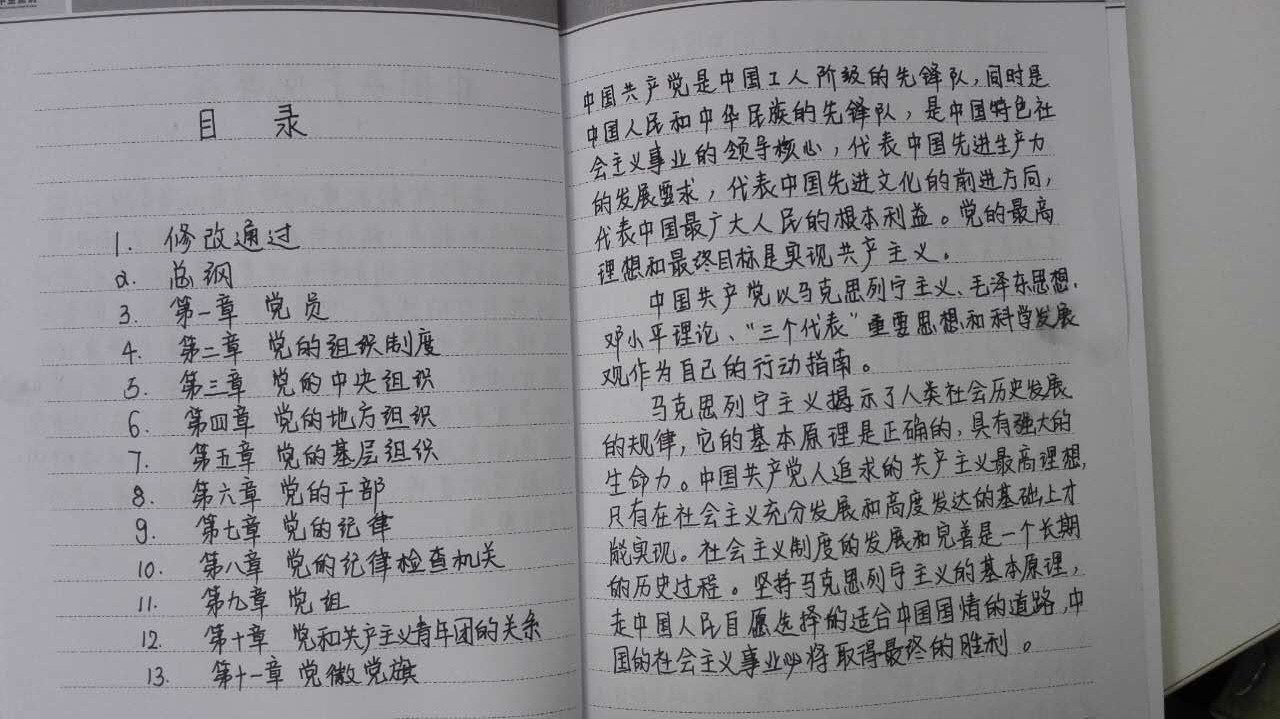 目 录
1. 修改通过
2. 总纲
3. 第一章 党员
4. 第二章 党的组织制度
5. 第三章 党的中央组织
6. 第四章 党的地方组织
7. 第五章 党的基层组织
8. 第六章 党的干部
9. 第七章 党的纪律
10. 第八章 党的纪律检查机关
11. 第九章 党组
12. 第十章 党和共产主义青年团的关系
13. 第十一章 党徽党旗
中国共产党是中国工人阶级的先锋队,同时是
中国人民和中华民族的先锋队,是中国特色社
会主义事业的领导核心,代表中国先进生产力
的发展要求,代表中国先进文化的前进方向,
代表中国最广大人民的根本利益。党的最高
理想和最终目标是实现共产主义。
中国共产党以马克思列宁主义、毛泽东思想、
邓小平理论、“三个代表”重要思想和科学发展
观作为自己的行动指南。
马克思列宁主义揭示了人类社会历史发展
的规律,它的基本原理是正确的,具有强大的
生命力。中国共产党人追求的共产主义最高理想,
只有在社会主义充分发展和高度发达的基础上才
能实现。社会主义制度的发展和完善是一个长期
的历史过程。坚持马克思列宁主义的基本原理,
走中国人民自愿选择的适合中国国情的道路,中
国的社会主义事业必将取得最终的胜利。